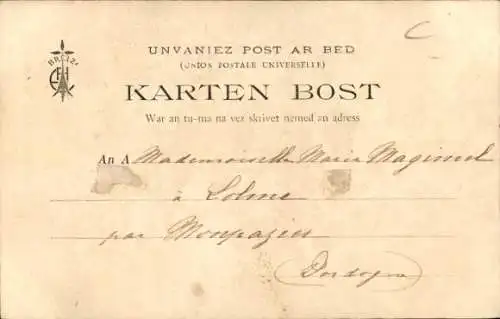 UNVANIEZ POST AR BED
(UNION POSTALE UNIVERSELLE)
BREIZ
KARTEN BOST
War an tu-ma na vez skrivet nemed an adress
An A Mademoiselle Marie Magimel
à Lolme
par Monpazier
(Dordogne)